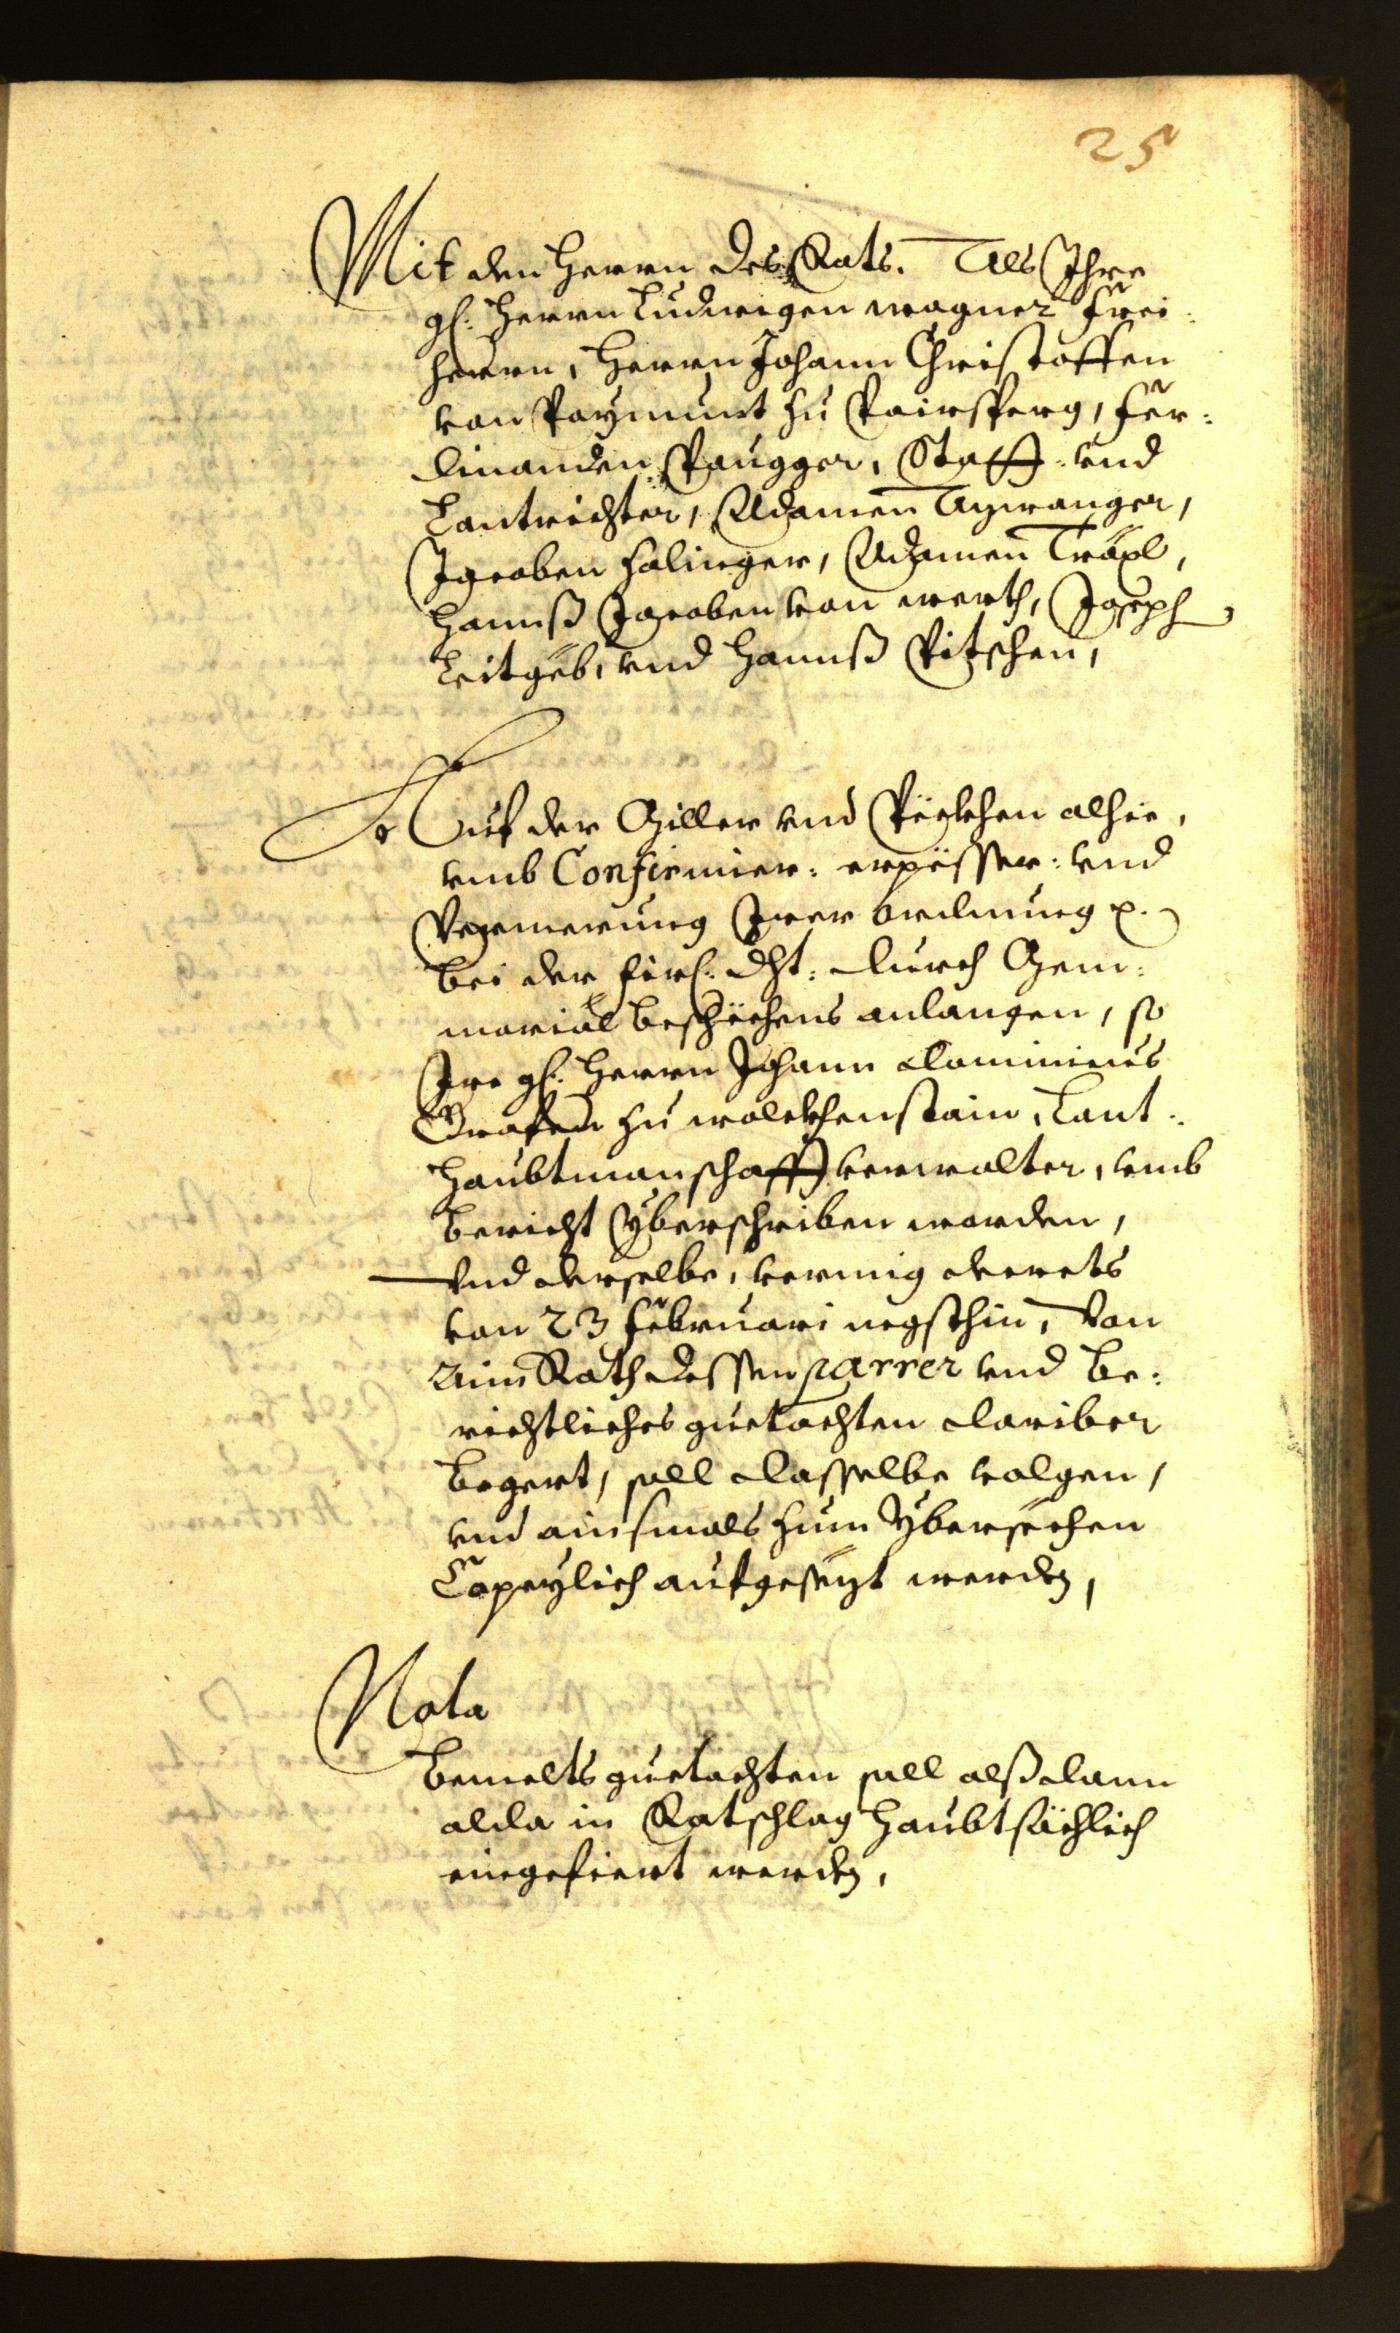 25
Mit den Herrn des Rats. Als Ihre
gl: Herrn Ludwigen wagner Frei:
herrn, Herrn Johann Christoffen
von Paymunt zu Pairsperg, Fer:
dinanden Paugger, Statt: vnd
Lantrichter, Adamen Ayrvanger,
Jacoben Holinger, Adamen Träxl,
Hannß Jacoben von werth, Joseph
Leitgeb, vnd Hannß Pitschen,
Auf der Müller vnd Peckhen alhie,
vmb Confirmier: erpesser: vnd
Vermerung Irer ordnung ꝛc.
bei der fürl: Dht: durch Mem:
morial beschechens anlangen, so
Ire gl: Herrn Johann Dominicus
Grafen zu wolckhenstain, Lant:
haubtmanschafft verwalter, vmb
bericht yberschriben worden,
vnd derselbe, vermig decrets
von 23 Februari negsthin, von
Aim Rath dessen parrer vnd be:
richtliches guetachten dariber
begert, soll dasselbe volgen,
vnd ainsmals zum ybersechen
Copeylich aufgesezt werden,
Nota
bemelts guetachten soll alßdann
alda in Ratschlag haubtsächlich
eingefiert werden,